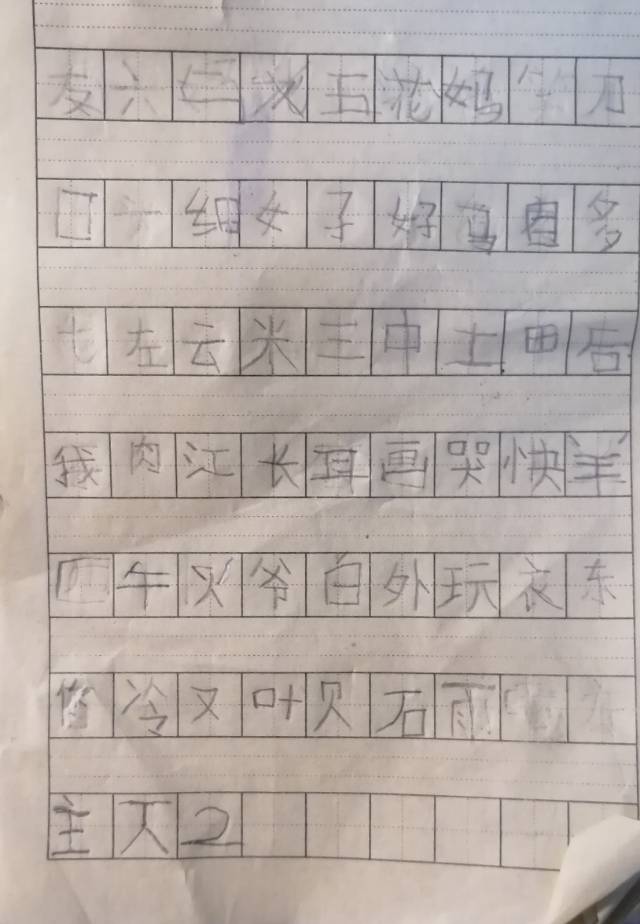 友六仁火五花妈竹刀
口十细女子好鸟自多
七左云米三中土田后
我肉江长耳画哭快羊
四午火爷白外玩衣东
你冷又叶贝石雨
主天2